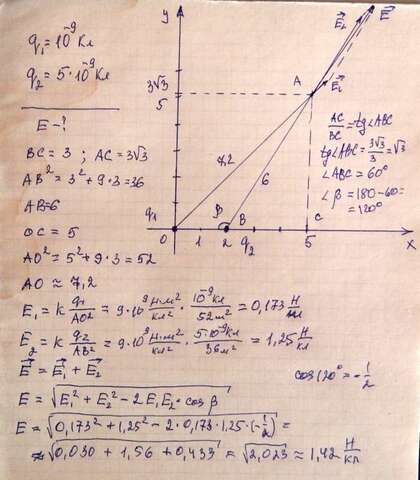 q₁ = 10⁻⁹ Кл
q₂ = 5·10⁻⁹ Кл
E - ?
BC = 3 ; AC = 3√3
AB² = 3² + 9·3 = 36
AB = 6
OC = 5
AO² = 5² + 9·3 = 52
AO ≈ 7,2
y
E⃗₂
E⃗
3√3
A
E⃗₁
5
7,2
6
q₁
β
B
C
0
1
2
q₂
5
x
AC/BC = tg∠ABC
tg∠ABC = 3√3/3 = √3
∠ABC = 60°
∠β = 180-60 =
= 120°
E₁ = k q₁/AO² = 9·10⁹ Н·м²/Кл² · 10⁻⁹ Кл/52 м² = 0,173 Н/Кл
E₂ = k q₂/AB² = 9·10⁹ Н·м²/Кл² · 5·10⁻⁹ Кл/36 м² = 1,25 Н/Кл
E⃗ = E⃗₁ + E⃗₂
cos 120° = -1/2
E = √(E₁² + E₂² - 2E₁E₂·cos β)
E = √(0,173² + 1,25² - 2·0,173·1,25·(-1/2)) =
≈ √(0,030 + 1,56 + 0,433) = √2,023 ≈ 1,42 Н/Кл